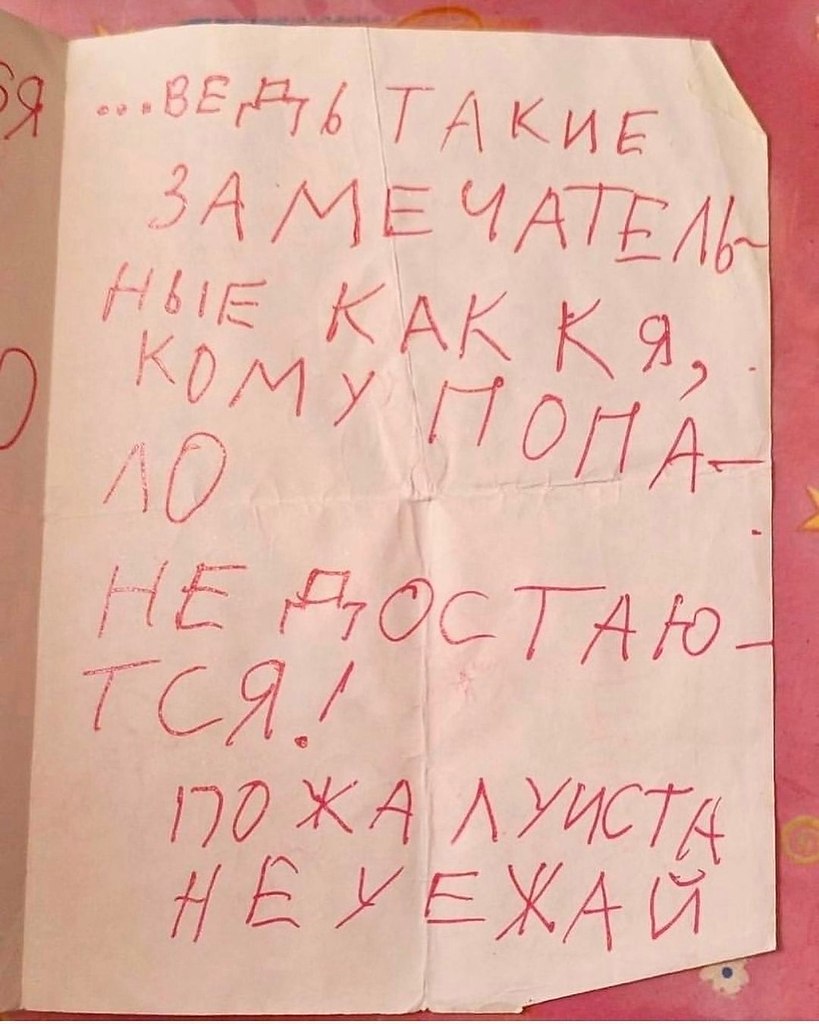 ...ВЕДЬ ТАКИЕ
ЗАМЕЧАТЕЛЬ-
НЫЕ КАК К Я,
КОМУ ПОПА-
ЛО
НЕ ДОСТАЮ-
ТСЯ!
ПОЖАЛУИСТА
НЕ УЕЖАЙ